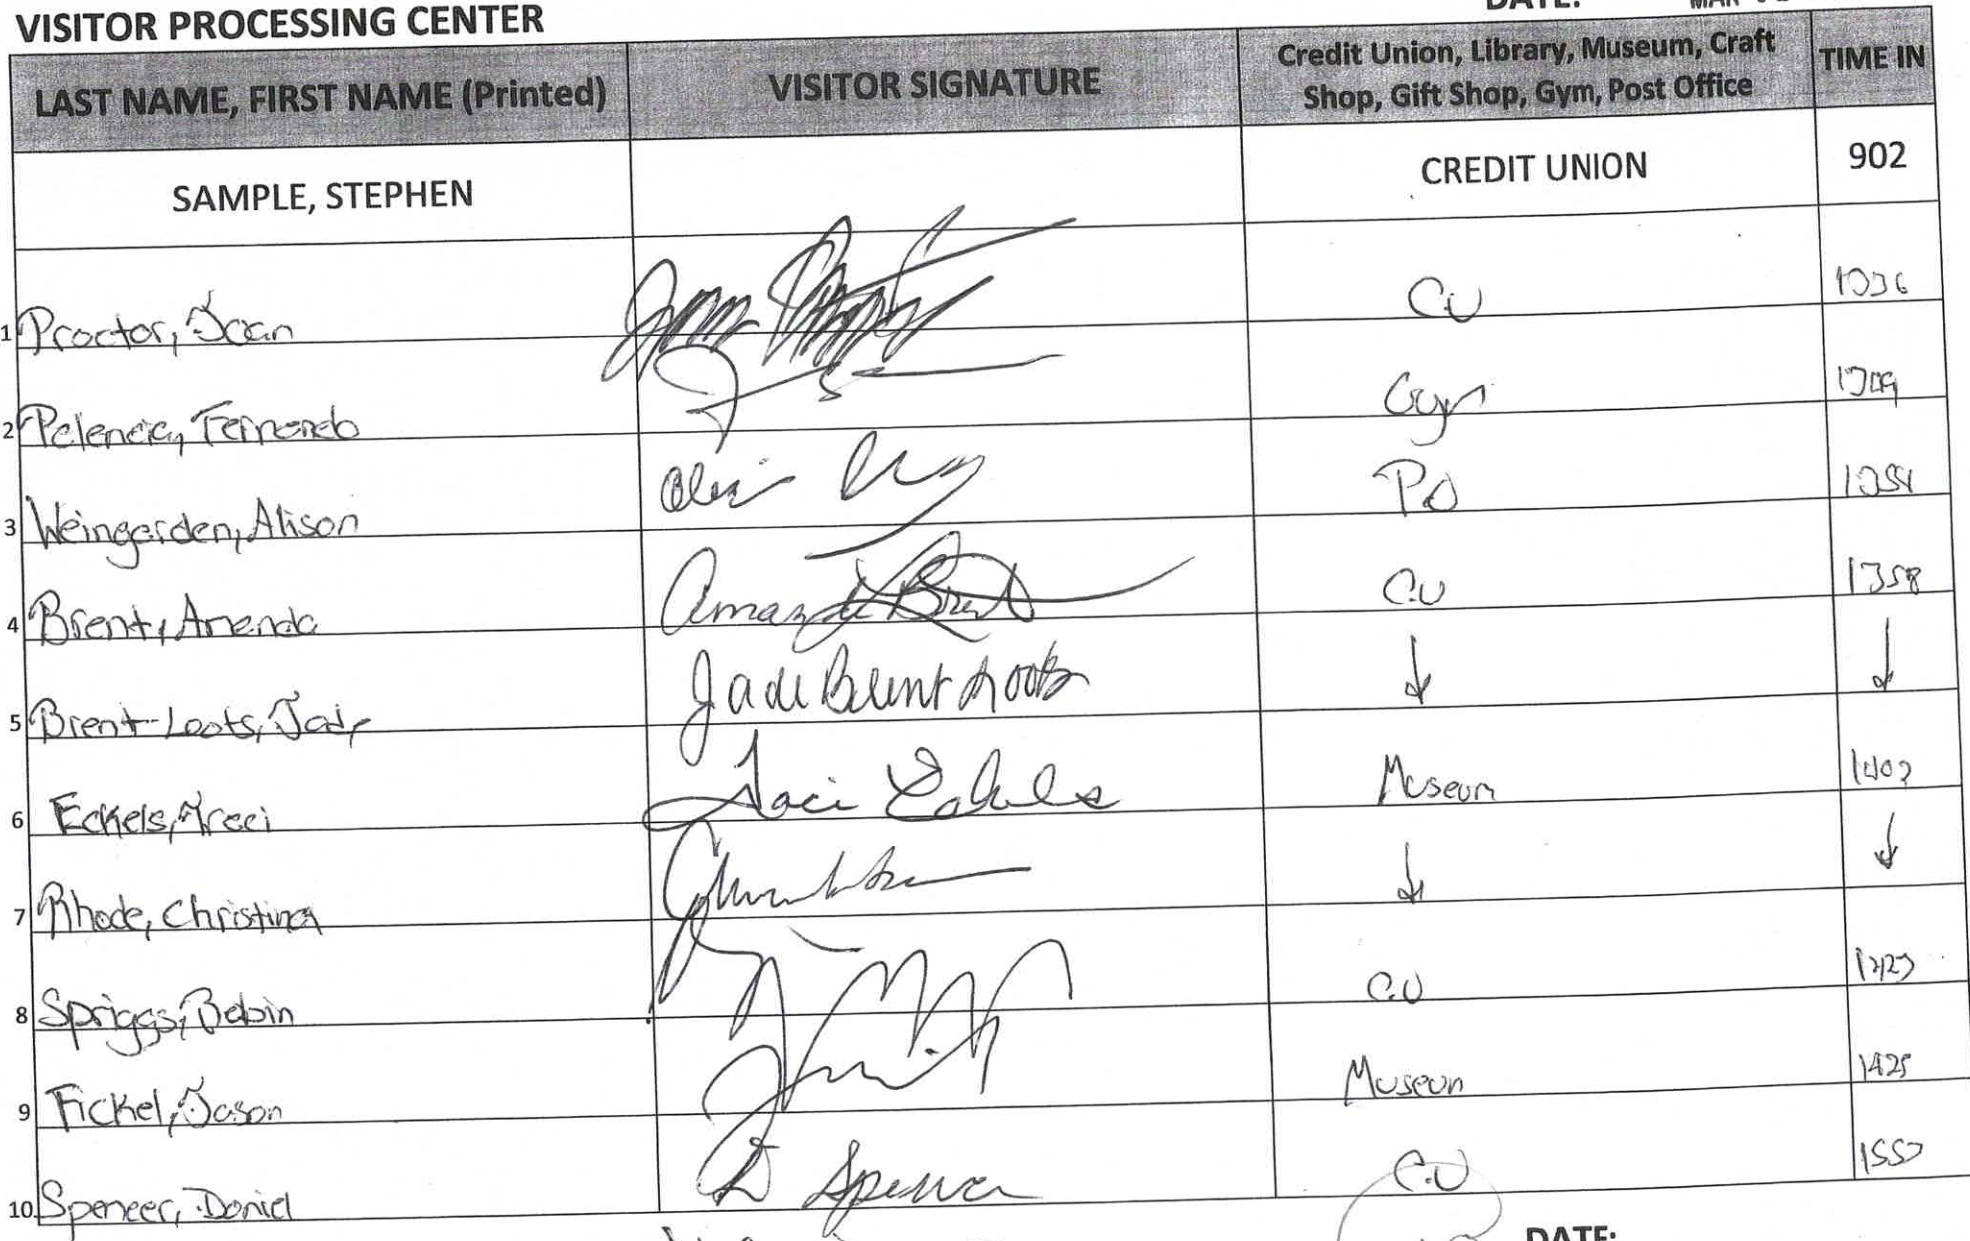 VISITOR PROCESSING CENTER DATE: MAR
LAST NAME, FIRST NAME (Printed) VISITOR SIGNATURE Credit Union, Library, Museum, Craft Shop, Gift Shop, Gym, Post Office TIME IN
SAMPLE, STEPHEN CREDIT UNION 902
1 Proctor, Joan CU 1336
2 Palencia, Fernando Gym
3 Weingarden, Alison PO 1354
4 Brent, Amanda Amanda Brent CU 1358
5 Brent-Loots, Jade Jade Brent Loots ↓ ↓
6 Eckels, Traci Traci Eckels Museum
7 Rhode, Christina ↓ ↓
8 Spriggs, Robin CU
9 Fickel, Jason Museum 1425
10 Spencer, Daniel D Spencer CU
DATE: